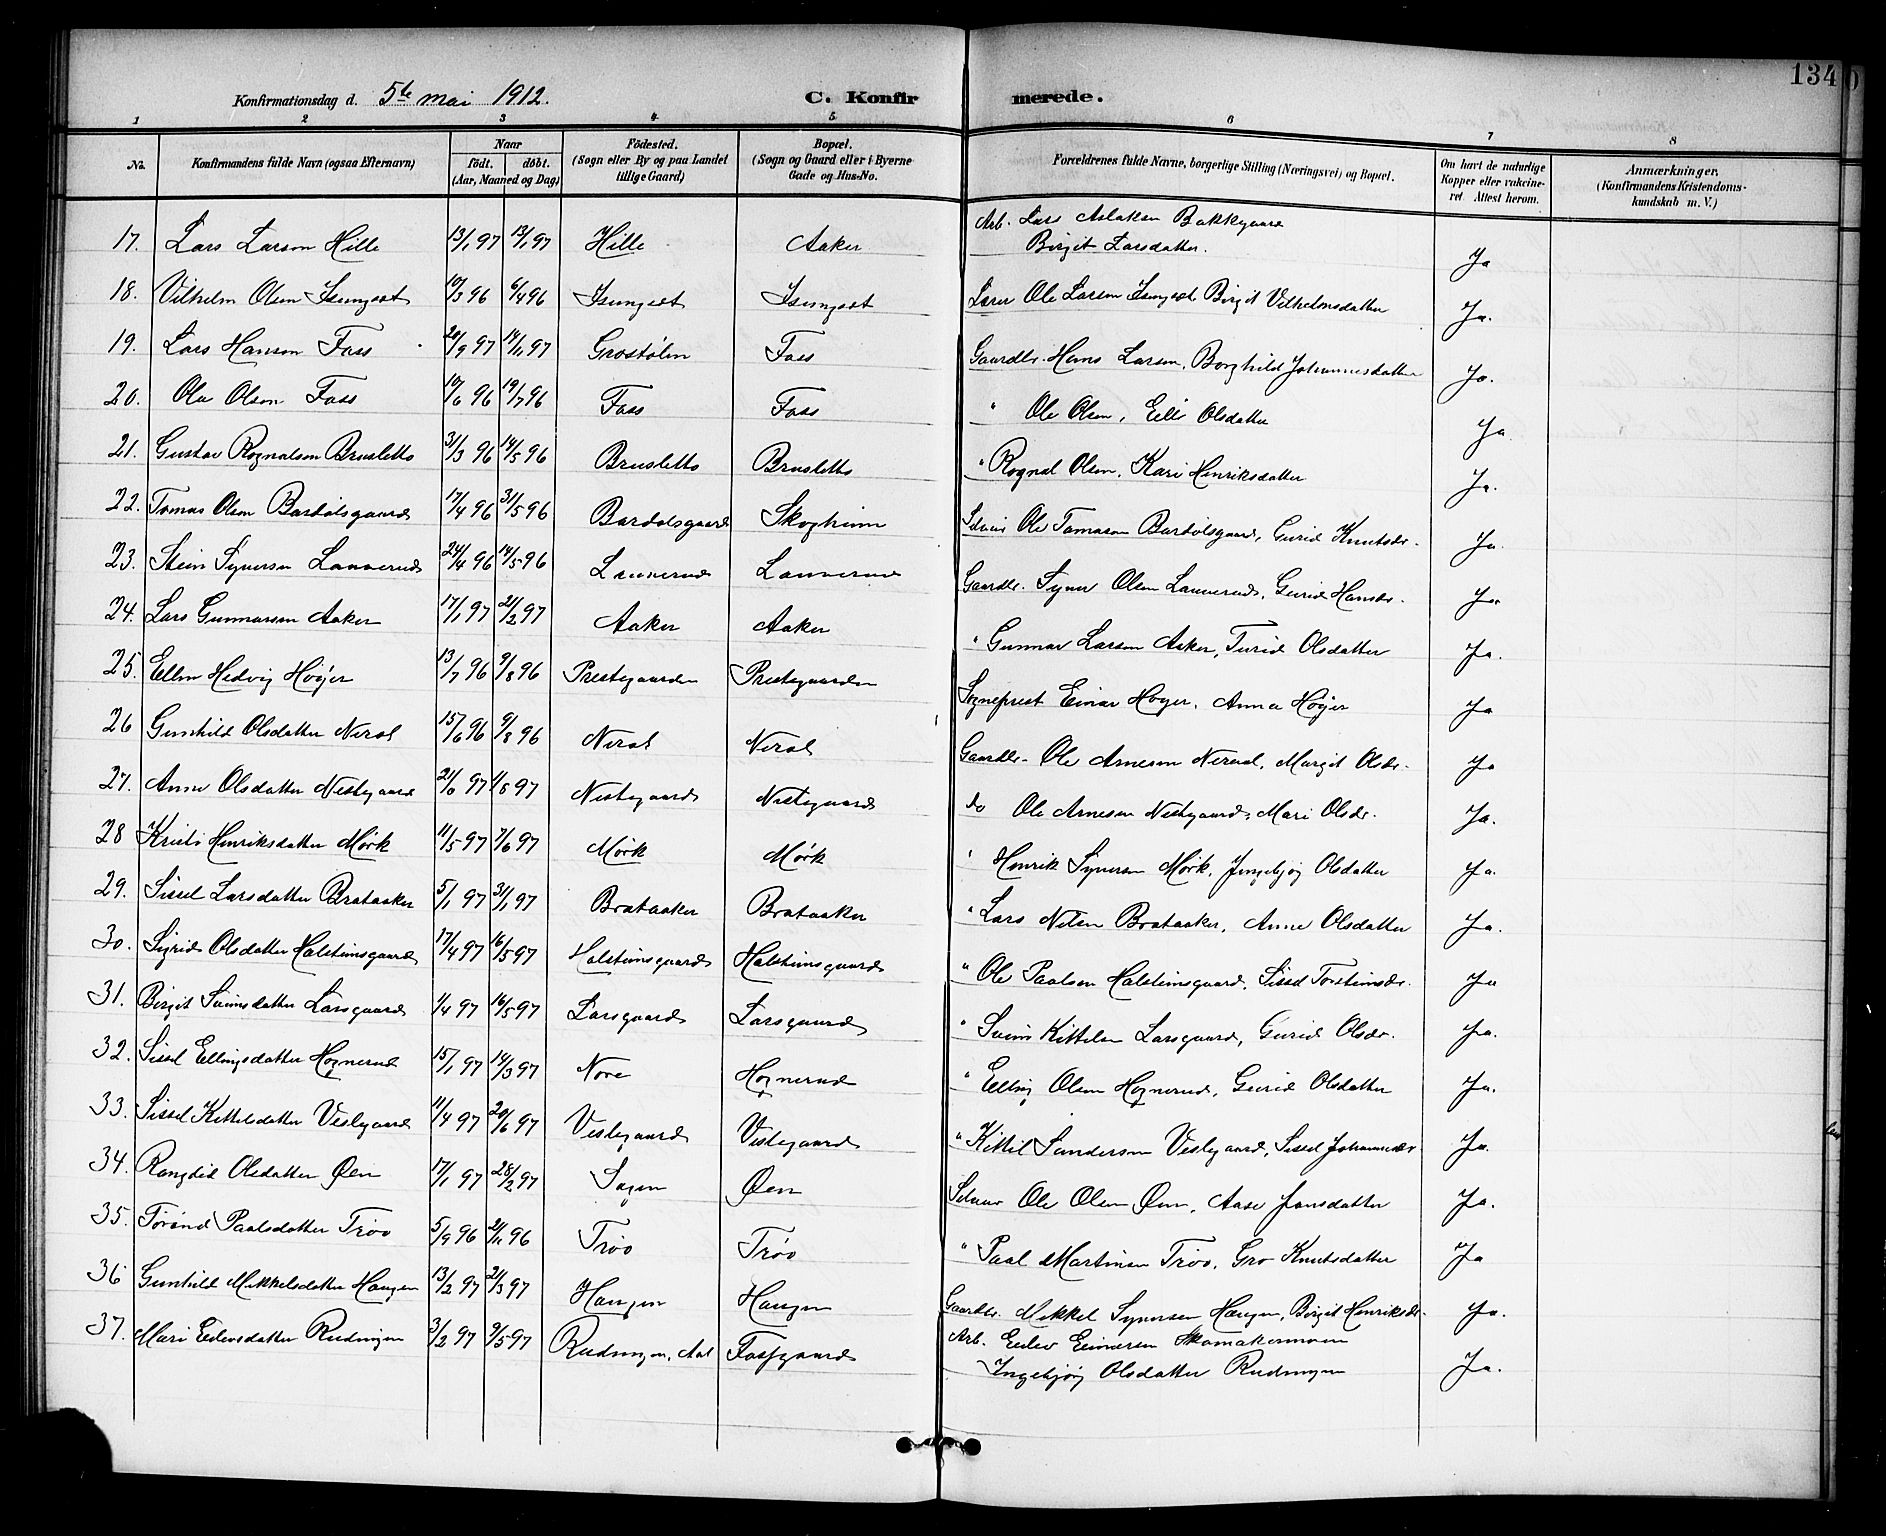 134
Konfirmationsdag d. 5te mai 1912.
C. Konfirmerede.
1 2 3 4 5 6 7 8
No. | Konfirmandens fulde Navn (ogsaa Efternavn) | Naar födt. döbt. (Aar, Maaned og Dag) | Födested. (Sogn eller By og paa Landet tillige Gaard) | Bopæl. (Sogn og Gaard eller i Byerne Gade og Hus-No. | Forældrenes fulde Navne, borgerlige Stilling (Næringsvei) og Bopæl. | Om havt de naturlige Kopper eller vakcineret Attest herom. | Anmærkninger. (Konfirmandens Kristendomskundskab m. V.)
17. Lars Larson Hille 13/1 97 13/1 97 Hille Aaker Arb. Lars Aslaksen Bakkegaard
Birgit Larsdatter. Ja
18. Vilhelm Olsen 10/3 96 6/4 96 Ole Larsen Birgit Vilhelmsdatter Ja.
19. Lars Hanson Foss 20/9 97 14/11 97 Grostølen Foss Gaardbr. Hans Larsen, Borghild Johannesdatter Ja.
20. Ole Olson Foss 10/6 96 19/7 96 Foss Foss " Ole Olsen, Eili Olsdatter Ja.
21. Gustav Rognalson Brusletto 31/3 96 14/5 96 Brusletto Brusletto " Rognal Olsen, Kari Henriksdatter Ja.
22. Tomas Olsen Bardølsgaard 17/4 96 31/5 96 Bardølsgaard Skogheim Ole Tomason Bardølsgaard, Gurid Knutsdr. Ja.
23. Stein Synersen Lauverud 24/4 96 14/5 96 Lauverud Lauverud Gaardbr. Syver Olsen Lauverud, Gurid Hansdr. Ja
24. Lars Gunnarsen Aaker 17/1 97 21/2 97 Aaker Aaker " Gunnar Larsen Aaker, Turid Olsdatter Ja.
25. Ellen Hedvig Høyer 13/7 96 9/8 96 Prestegaarden Prestegaarden Sogneprest Einar Høyer, Anna Høyer Ja
26 Gunhild Olsdatter Neral 15/6 96 9/8 96 Neral Neral Gaardbr. Ole Arnesen Neraal, Margit Olsdr. Ja
27. Anne Olsdatter Nestegaard 97 97 Nestegaard Nestegaard do Ole Arnesen Nestegaard, Mari Olsdr. Ja.
28 Kristi Henriksdatter Mørk 11/5 97 7/6 97 Mørk Mørk " Henrik Synersen Mørk, Jngebjøg Olsdatter Ja.
29. Sissel Larsdatter Brataaker 5/1 97 31/1 97 Brataaker Brataaker " Lars Nilsen Brataaker, Anne Olsdatter Ja.
30. Sigrid Olsdatter Halsteinsgaard 17/4 97 16/5 97 Halsteinsgaard Halsteinsgaard " Ole Paalsen Halsteinsgaard, Sissel Torsteinsdr. Ja
31. Birgit Sveinsdatter Larsgaard 1/4 97 16/5 97 Larsgaard Larsgaard " Svein Kittelsen Larsgaard, Gurid Olsdr. Ja.
32. Sissel Ellingsdatter Hognerud 15/1 97 14/3 97 Nore Hognerud " Elling Olsen Hognerud, Gurid Olsdatter Ja.
33. Sissel Kittelsdatter Veslegaard 11/4 97 20/6 97 Veslegaard Veslegaard " Kittil Sanderson Veslegaard, Sissel Johannesdr Ja.
34. Rangdid Olsdatter Øen 17/1 97 28/2 97 Sagen Øen Ole Olsen Øen, Aase Jonsdatter Ja.
35. Tørønd Paalsdatter Trøo 5/9 96 96 Trøo Trøo " Paal Martinsen Trøo, Gro Knutsdatter Ja
36 Gunhild Mikkelsdatter Haugen 13/2 97 21/3 97 Haugen Haugen Gaardbr. Mikkel Synersen Haugen, Birgit Henriksdr. Ja.
37. Mari Eilevsdatter Rudningen 3/2 97 9/5 97 Rudningen, Aal Fossgaard Arb. Eilev Einersen Skomakermoen
Ingebjøg Olsdatter Rudningen Ja.